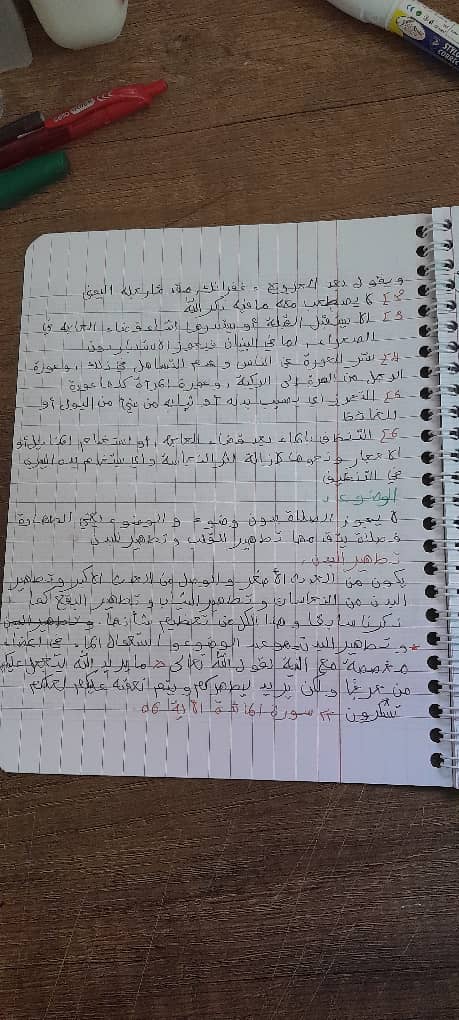 ويقول بعد الخروج: غفرانك
2] لا يصطحب معه ما فيه ذكر الله
3] لا يستقبل القبلة أو يستدبرها أثناء قضاء الحاجة في
الصحراء، أما في البنيان فيجوز
4] ستر العورة عن الناس وعدم التساهل في ذلك، وعورة
الرجل من السرة إلى الركبة، وعورة المرأة كلها عورة
5] التحرز أن يصيب بدنه أو ثيابه من شيء من البول أو
الغائط
6] التنظف بالماء بعد قضاء الحاجة، أو استخدام المناديل أو
الأحجار ونحوها لإزالة أثر النجاسة و يستخدم يده اليسرى
في التنظيف
الوضوء:
لا يجوز الصلاة بدون وضوء و الوضوء
يتقدمها تطهير القلب وتطهير البدن
تطهير البدن:
يكون من الحدث الأصغر والغسل من الحدث الأكبر وتطهير
البدن من النجاسات وتطهير الثياب وتطهير البقع كما
ذكرنا سابقا وهذا
وتطهير البدن الوضوء استعمال الماء في أعضاء
مخصصة مع النية يقول الله تعالى ما يريد الله ليجعل عليكم
من حرج ولكن يريد ليطهركم وليتم نعمته عليكم لعلكم
تشكرون سورة المائدة الآية 06